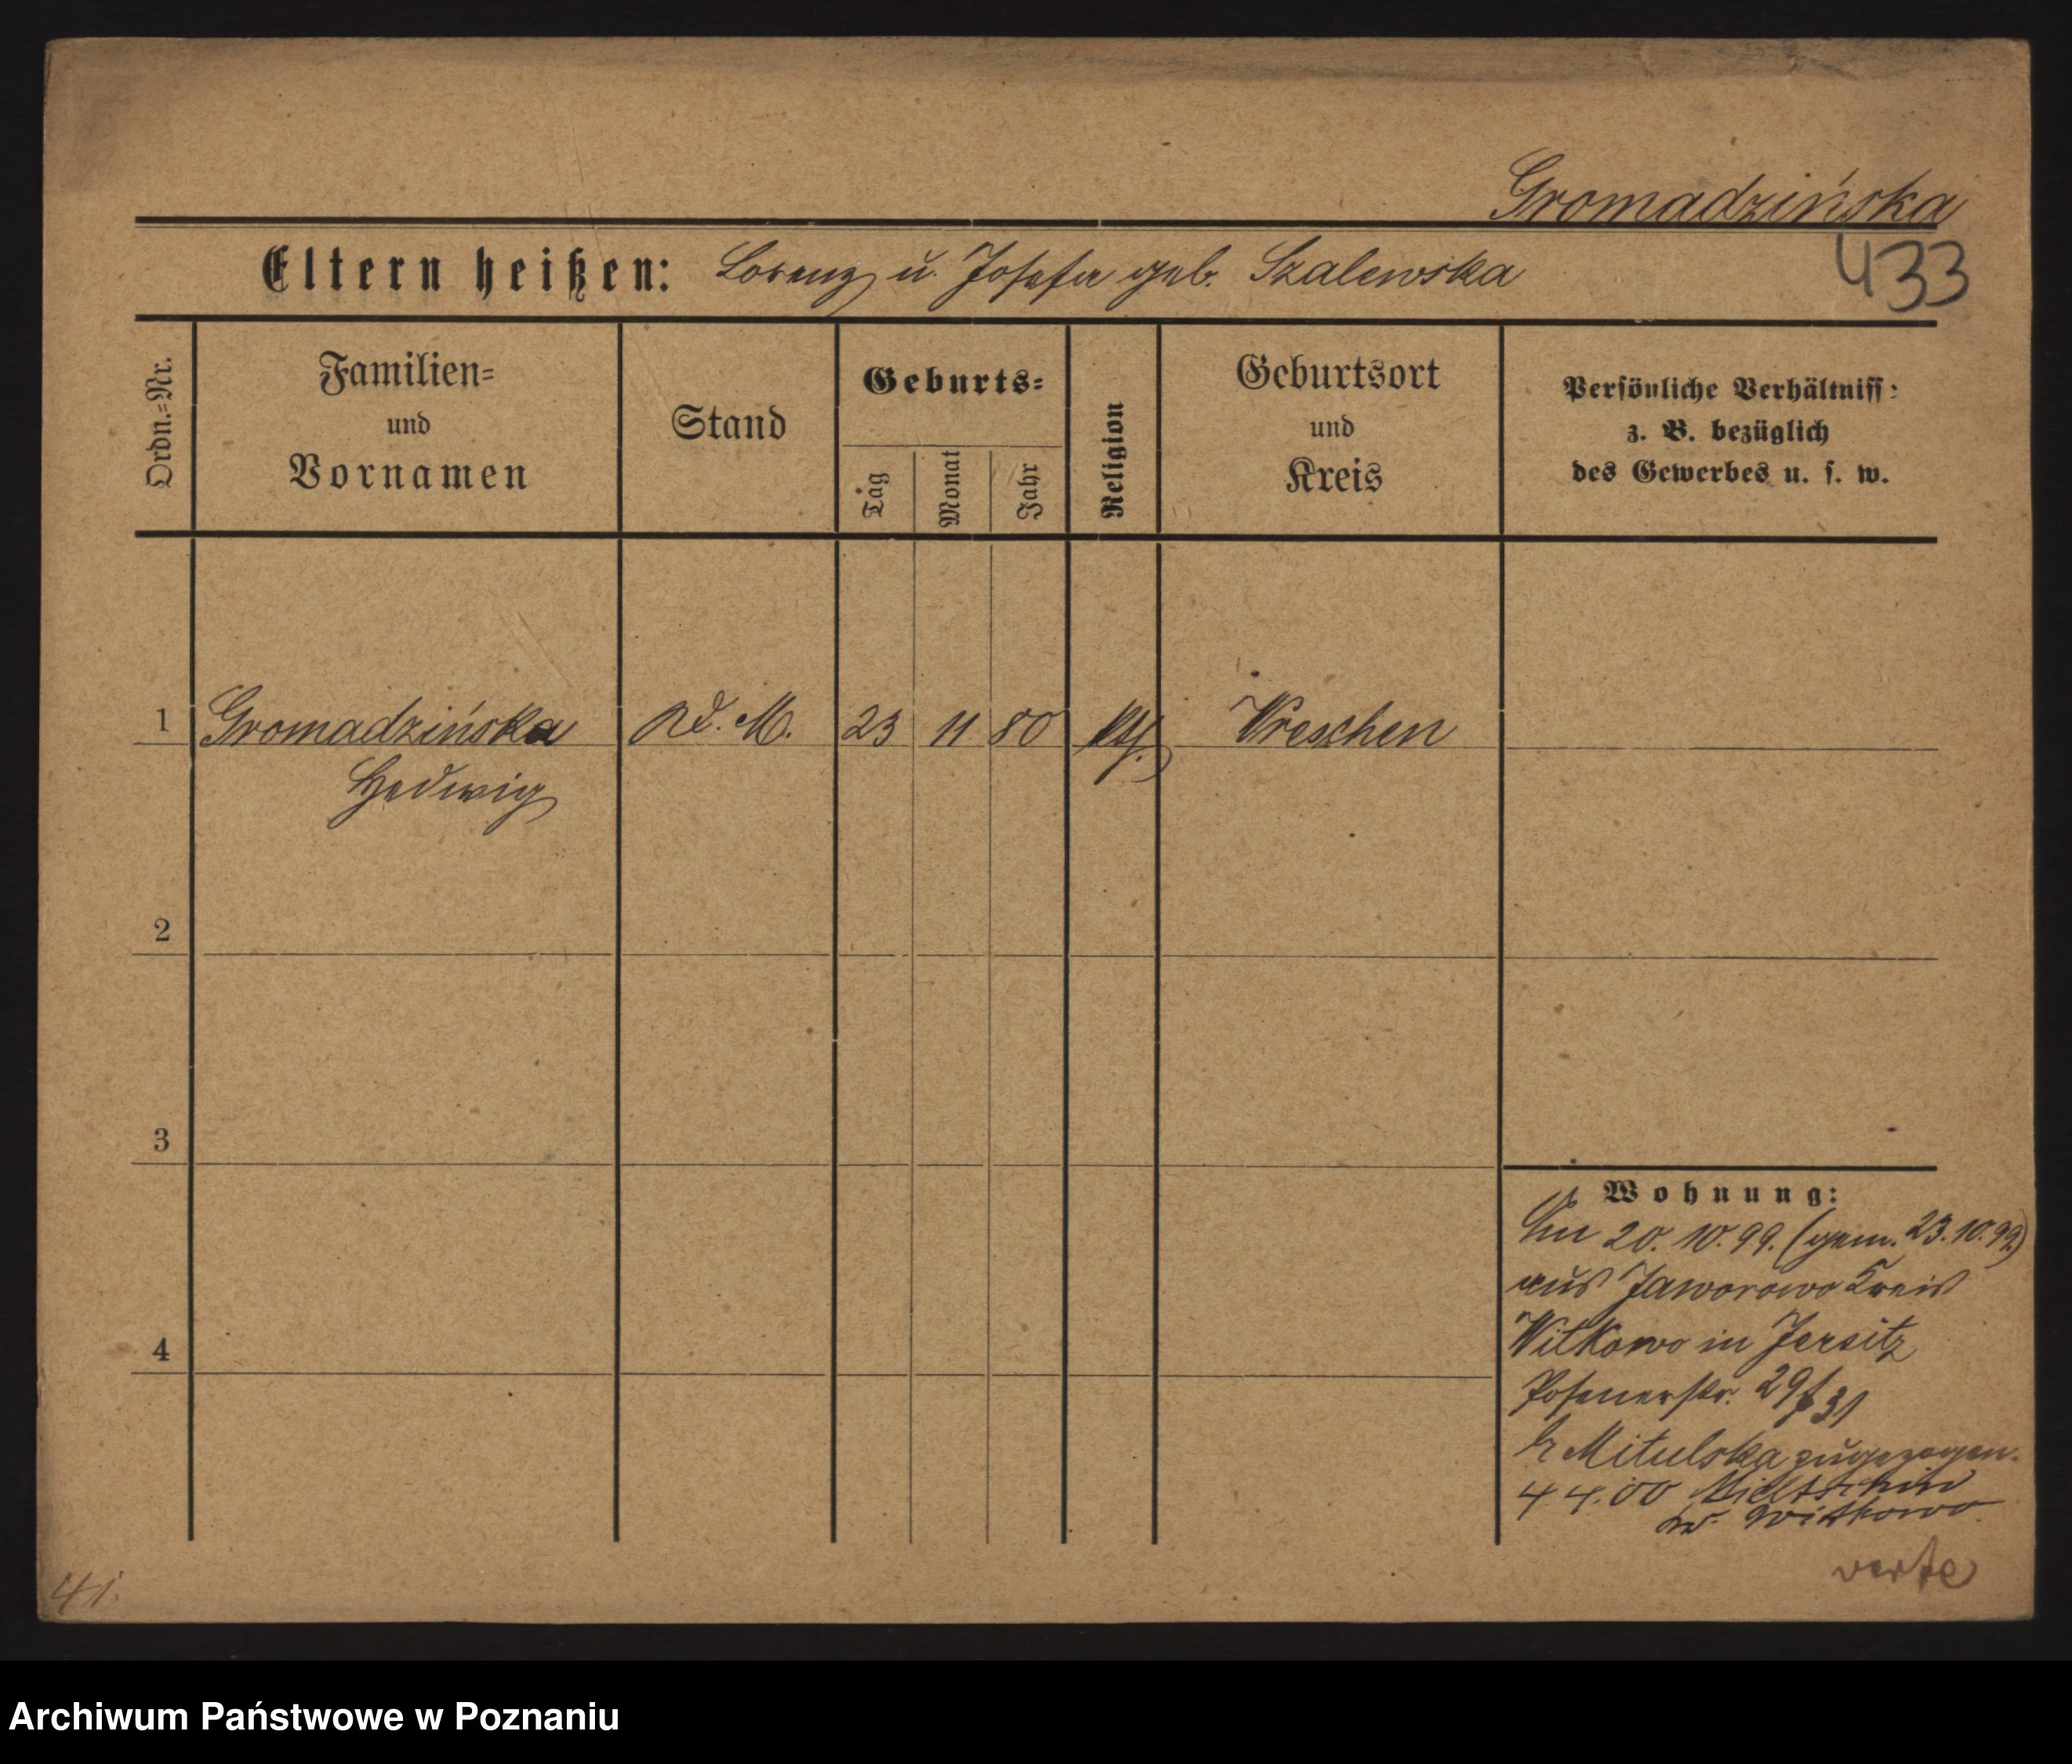 Gromadzińska
433
Eltern heißen: Lorenz u. Josefa geb. Szalewska
Ordn.=Nr.
Familien=
und
Vornamen
Stand
Geburts=
Tag
Monat
Jahr
Religion
Geburtsort
und
Kreis
Persönliche Verhältniss:
z. B. bezüglich
des Gewerbes u. s. w.
1 Gromadzińska M. 23 11 80 kth. Wreschen
Hedwig
2
3
4
Wohnung:
Am 20. 10. 99. (gem. 23.10.99)
aus Jaworowo Kreis
Witkowo in Jersitz
Posenerstr. 29/31
b Mitulska zugezogen.
4 4. 00 Mieltschin
Kr. Witkowo.
verte
41.
Archiwum Państwowe w Poznaniu